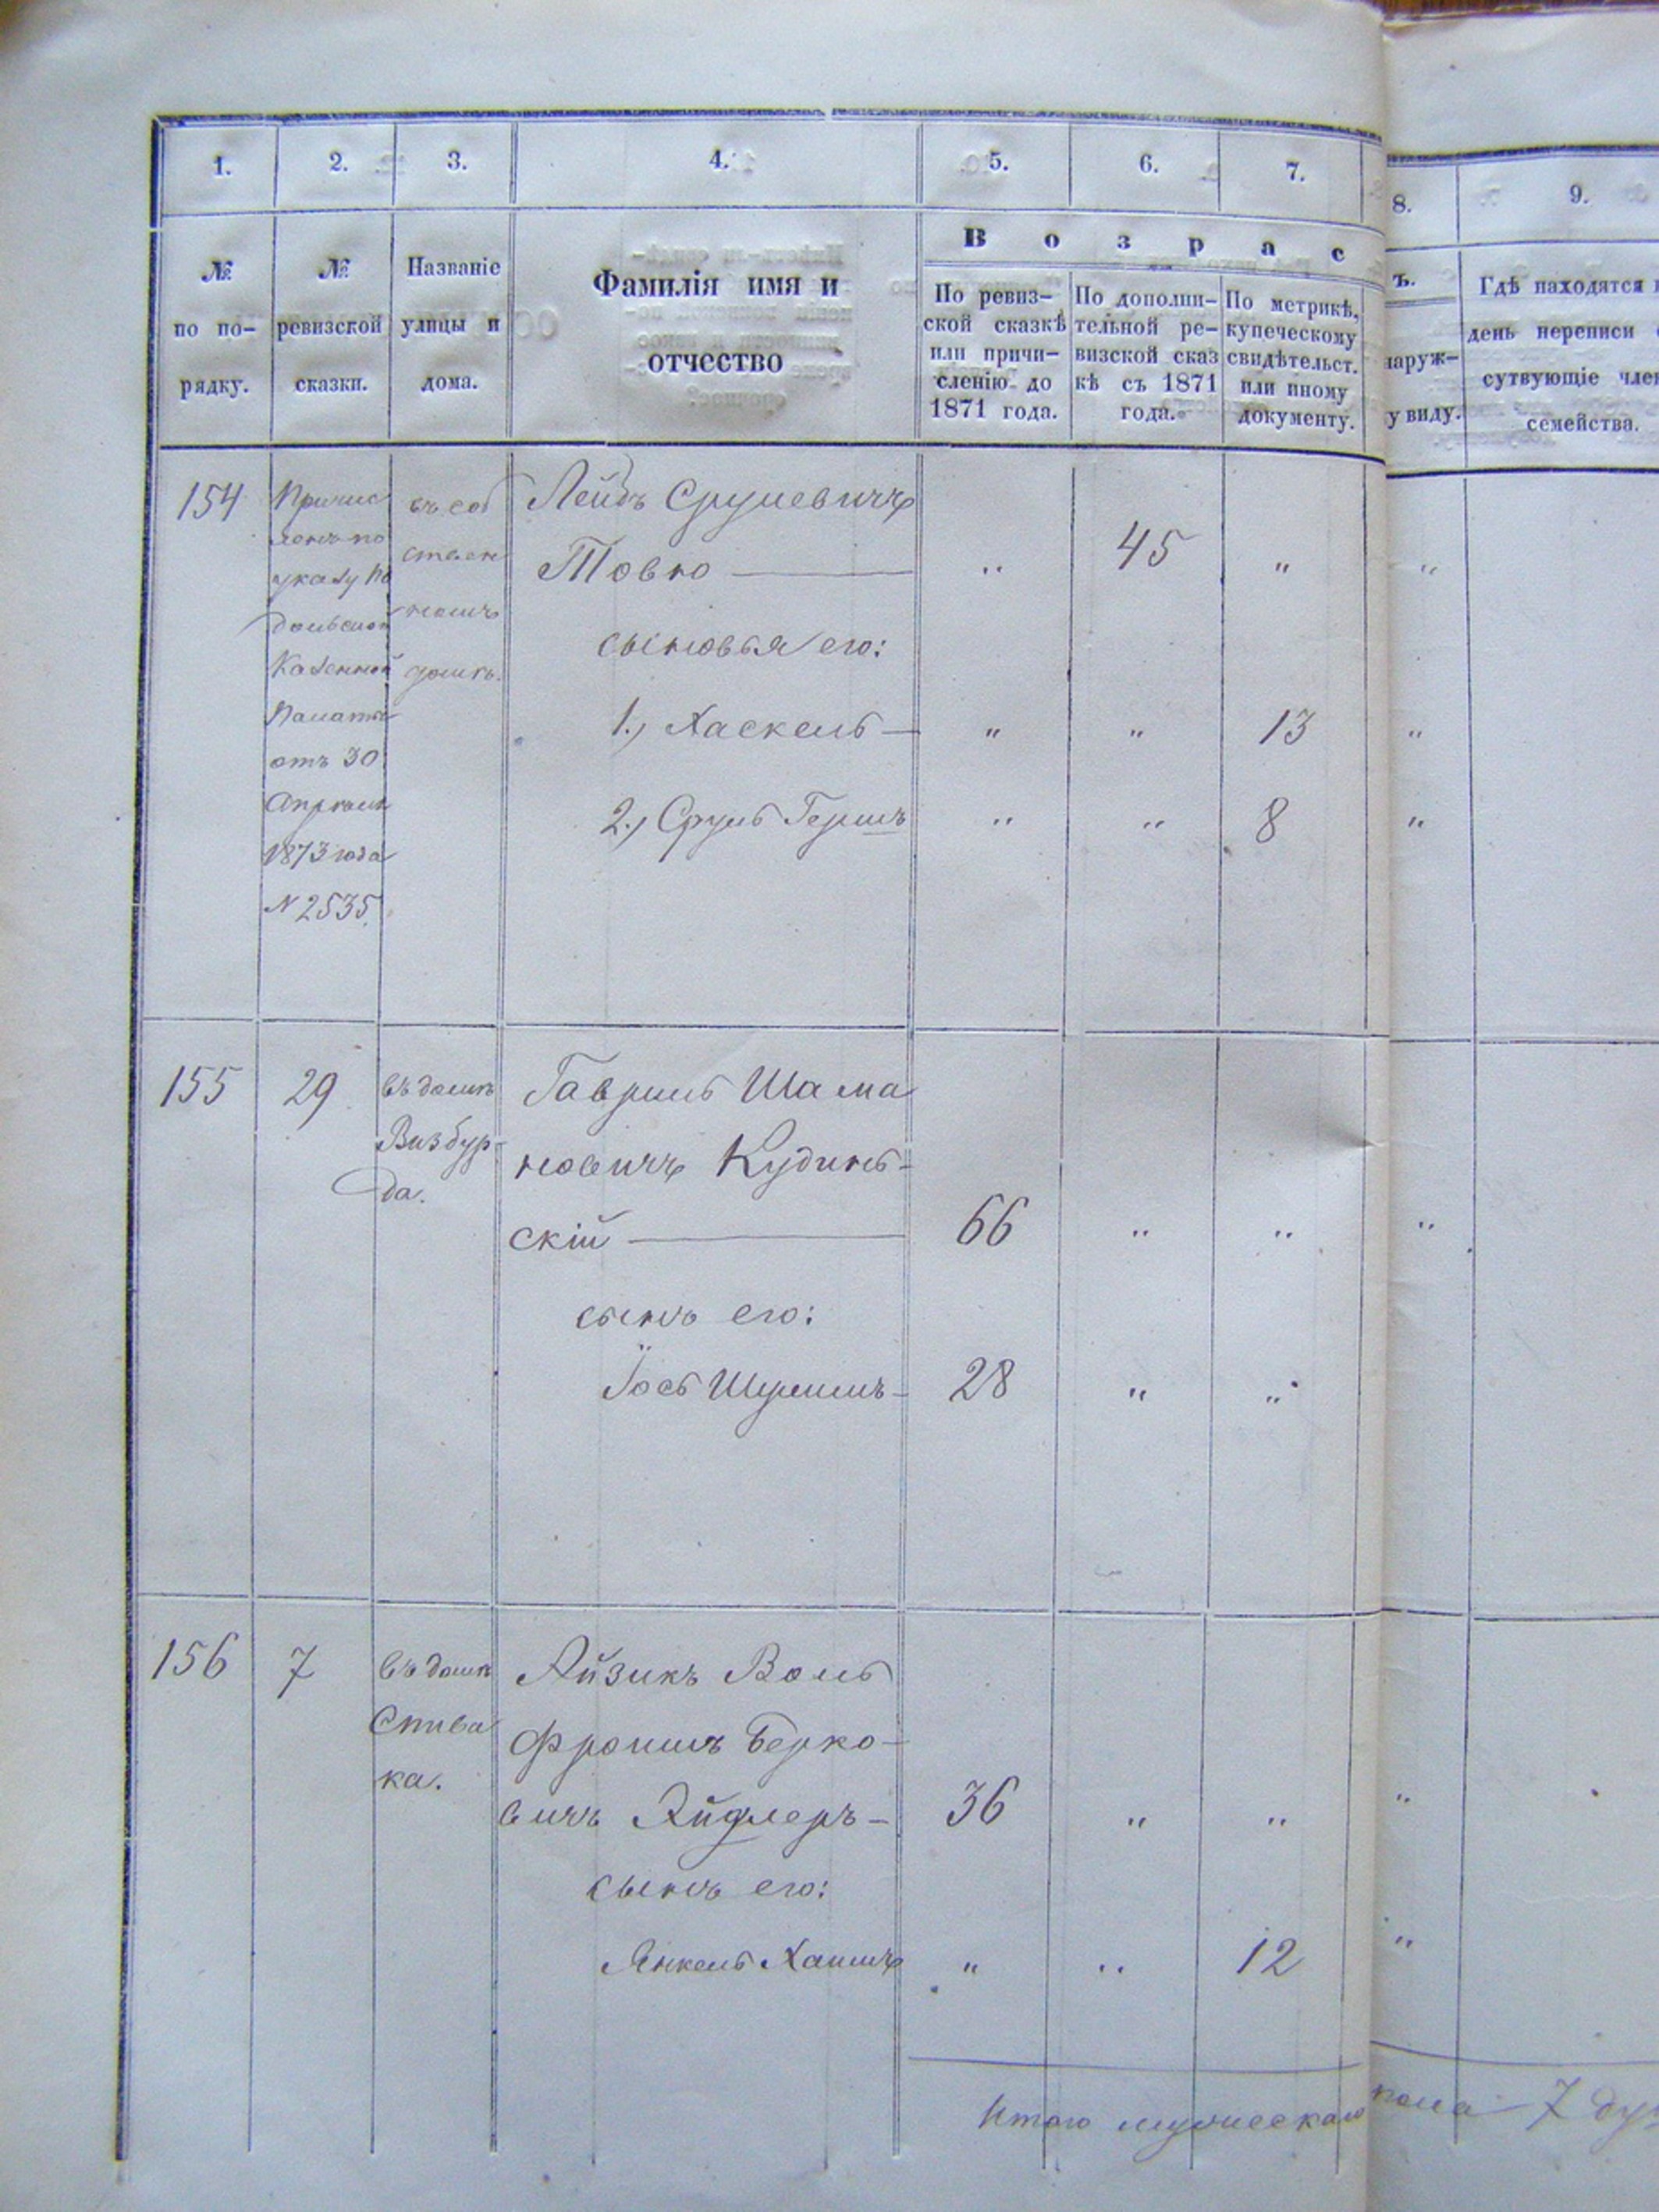 1. 2. 3. 4. 5. 6. 7. 8. 9.
№ по по-рядку.
№ ревизской сказки.
Названіе улицы и дома.
Фамилія имя и отчество
В о з р а с ъ.
По ревиз-
ской сказкѣ
или причи-
сленію до
1871 года.
По дополни-
тельной ре-
визской сказ
кѣ съ 1871
года.
По метрикѣ,
купеческому
свидѣтельст.
или иному
документу.
наруж-
у виду.
Гдѣ находятся
день переписи
сутвующіе член
семейства.
154
Причис
ленъ по
указу По
дольской
Казенной
Палаты
отъ 30
Апрѣля
1873 года
N 2535.
въ соб
ствен
номъ
домѣ.
Лейбъ Срулевичъ
Товно — „ 45 „ „
сыновья его:
1., Хаскель — „ „ 13 „
2., Сруль Гершъ „ „ 8 „
155 29
въ домѣ
Визбур-
да.
Гавриль Шама
новичъ Кудинь-
скій — 66 „ „ „
сынъ его:
Іось Шулимъ — 28 „ „
156 7
въ домѣ
Спива
ка.
Айзикъ Воль
Фроимъ Берко-
вичъ Айдлеръ — 36 „ „ „
сынъ его:
Янкель Хаимъ „ „ 12 „
Итого мужескаго пола — 7 ду